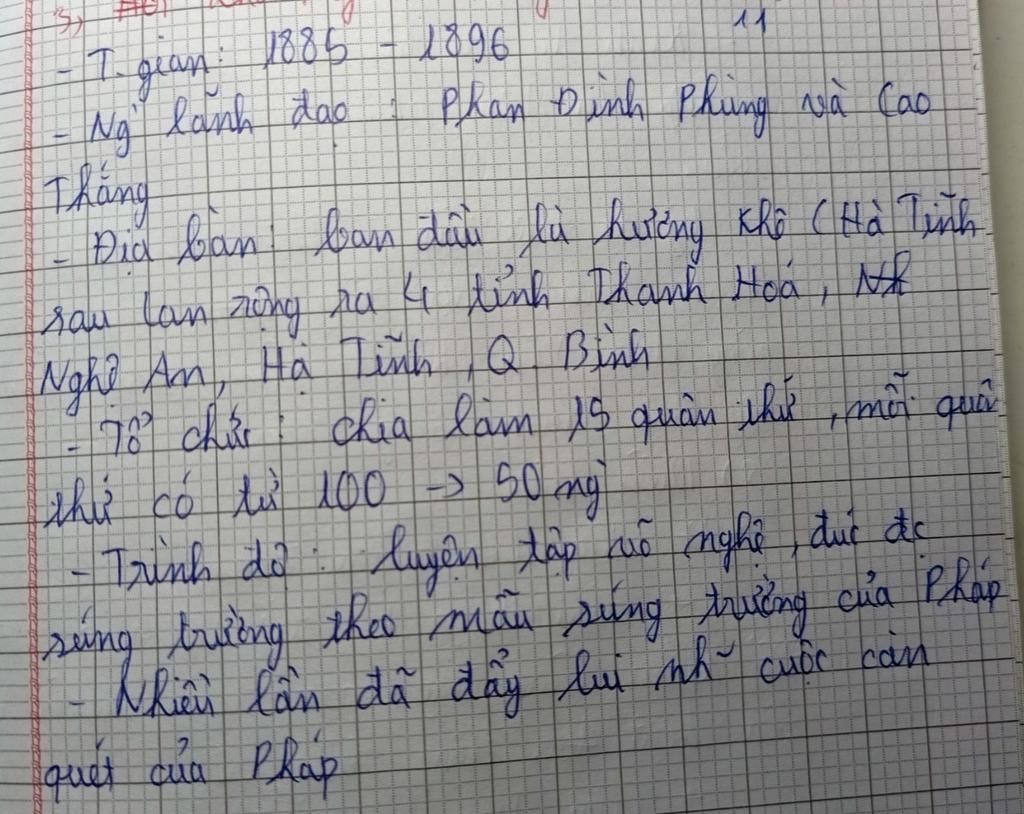 3,
11
- T. gian: 1885 - 1896
- Ng` lãnh đạo : Phan Đình Phùng và Cao
Thắng
- Địa bàn: ban đầu là hương Khê (Hà Tĩnh
sau lan rộng ra 4 tỉnh Thanh Hoá,
Nghệ An, Hà Tĩnh, Q. Bình
- Tổ chức : chia làm 15 quân thứ, mỗi quâ
thứ có từ 100 -> 50 ng`
- Trình độ : luyện tập võ nghệ, đúc đc
súng trường theo mẫu súng trường của Pháp
- Nhiều lần đã đẩy lui nh~ cuộc càn
quét của Pháp